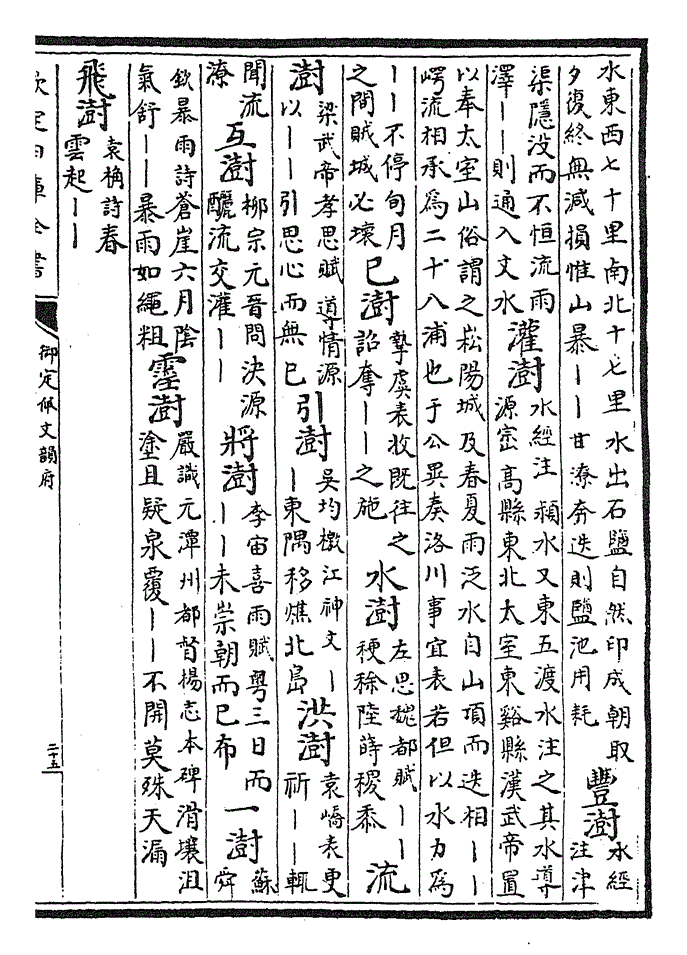 水東西七十里南北十七里水出石鹽自然印成朝取
夕復終無減損惟山暴——甘潦奔迭則鹽池用耗
豐澍
水經
注津
渠隱没而不恒流雨
澤——則通入文水
灌澍
水經注潁水又東五渡水注之其水導
源崈高縣東北太室東谿縣漢武帝置
以奉太室山俗謂之崧陽城及春夏雨泛水自山頂而迭相——
崿流相承為二十八浦也于公異奏洛川事宜表若但以水力為
——不停旬月
之間賊城必壞
已澍
摯虞表收既往之
詔奪——之施
水澍
左思魏都賦——
稉稌陸蒔稷黍
流
澍
梁武帝孝思賦導情源
以——引思心而無已
引澍
吴均檄江神文—
—東隅移燋北島
洪澍
袁嶠表更
祈——輒
聞流
潦
互澍
柳宗元晉問決源
釃流交灌——
將澍
李宙喜雨賦粤三日而
——未崇朝而已布
一澍
蘇
舜
欽暴雨詩蒼崖六月陰
氣舒——暴雨如繩粗
霔澍
嚴識元潭州都督楊志本碑滑壤沮
塗且疑泉覆——不開莫殊天漏
飛澍
袁桷詩春
雲起——
欽定四庫全書
御定佩文韻府
二十五